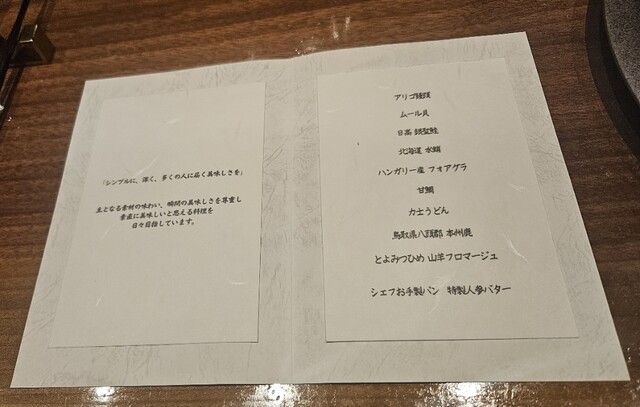 「シンプルに、深く、多くの人に届く美味しさを」
主となる素材の味わい、瞬間の美味しさを尊重し
素直に美味しいと思える料理を
日々目指しています。
アリゴ
ムール貝
日高 銀聖鮭
北海道 水蛸
ハンガリー産 フォアグラ
甘鯛
力士うどん
鳥取県八頭郡 本州鹿
とよみつひめ 山羊フロマージュ
シェフお手製パン 特製人参バター